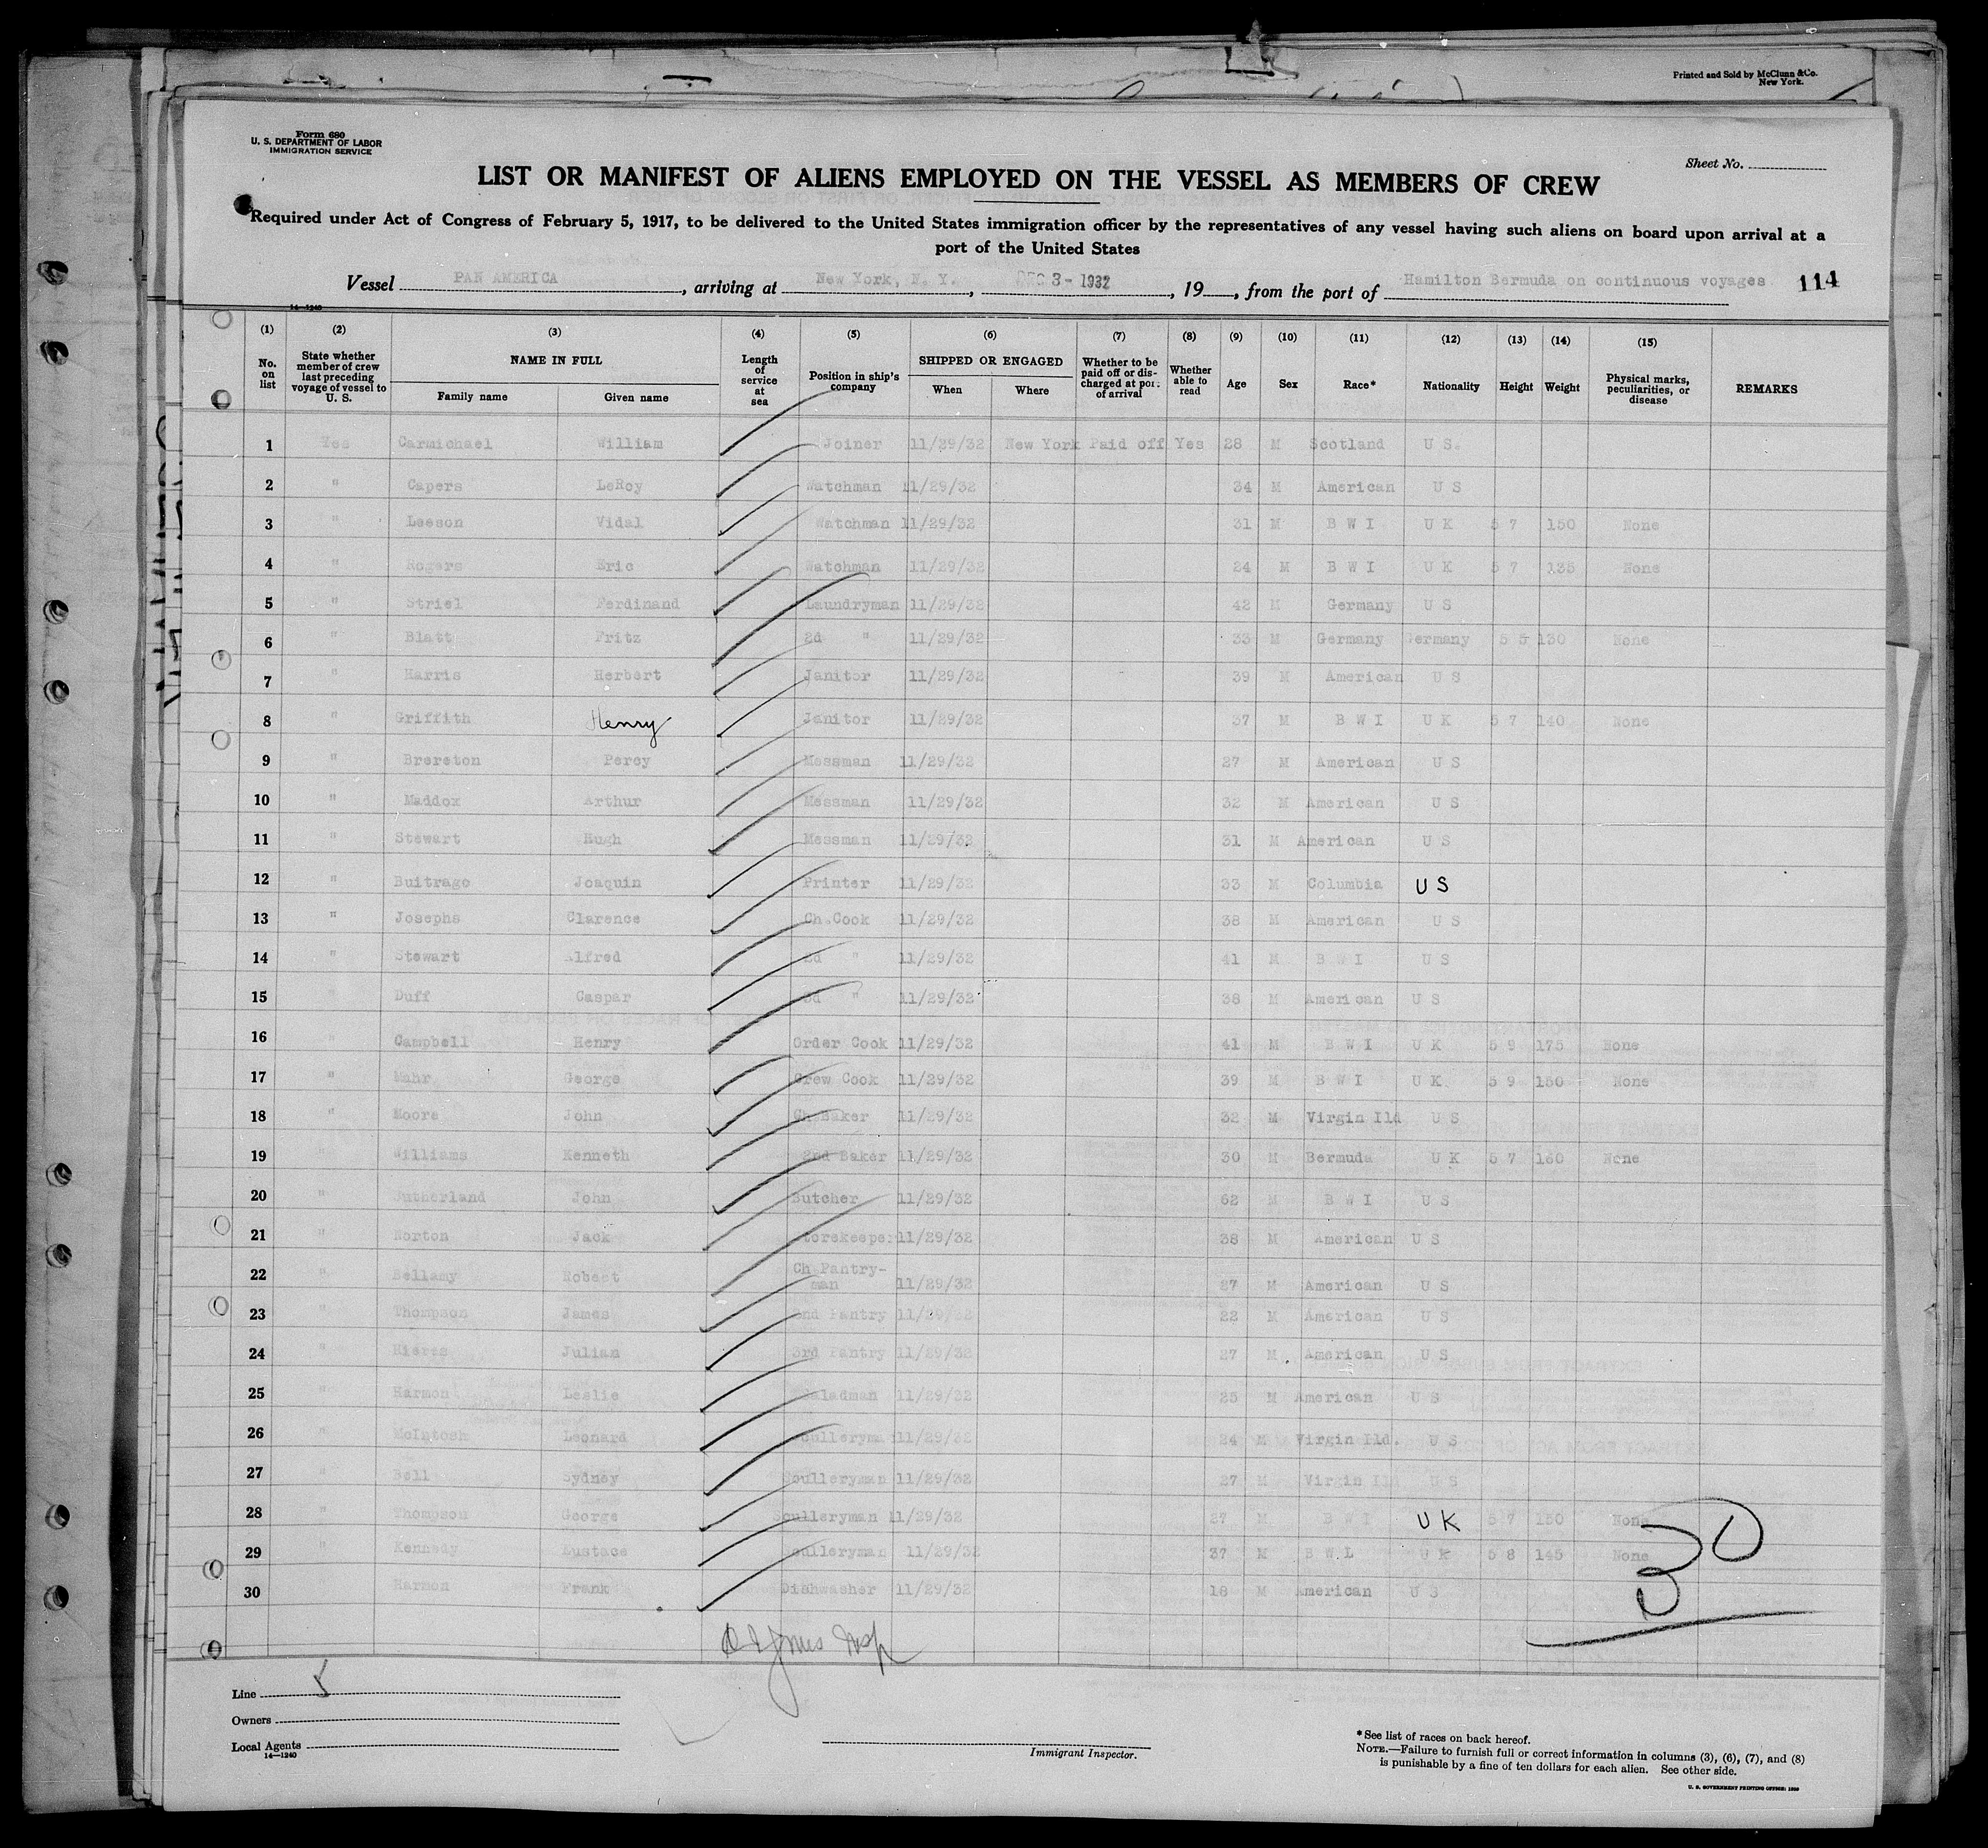 Printed and Sold by McClunn & Co.
New York.
Form 680
U. S. DEPARTMENT OF LABOR
IMMIGRATION SERVICE
Sheet No.
LIST OR MANIFEST OF ALIENS EMPLOYED ON THE VESSEL AS MEMBERS OF CREW
Required under Act of Congress of February 5, 1917, to be delivered to the United States immigration officer by the representatives of any vessel having such aliens on board upon arrival at a
port of the United States
Vessel PAN AMERICA, arriving at New York, N. Y., DEC 3 - 1932, 19__, from the port of Hamilton Bermuda on continuous voyages 114
14—1240
(1) (2) (3) (4) (5) (6) (7) (8) (9) (10) (11) (12) (13) (14) (15)
No. on list State whether member of crew last preceding voyage of vessel to U. S. NAME IN FULL Length of service at sea Position in ship's company SHIPPED OR ENGAGED Whether to be paid off or discharged at port of arrival Whether able to read Age Sex Race* Nationality Height Weight Physical marks, peculiarities, or disease REMARKS
Family name Given name When Where
1 Yes Carmichael William Joiner 11/29/32 New York Paid off Yes 28 M Scotland U S.
2 " Capers LeRoy Watchman 11/29/32 34 M American U S
3 " Leeson Vidal Watchman 11/29/32 31 M B W I U K 5 7 150 None
4 " Rogers Eric Watchman 11/29/32 24 M B W I U K 5 7 135 None
5 " Striel Ferdinand Laundryman 11/29/32 42 M Germany U S
6 " Blatt Fritz 2d " 11/29/32 33 M Germany Germany 5 5 130 None
7 " Harris Herbert Janitor 11/29/32 39 M American U S
8 " Griffith Henry Janitor 11/29/32 37 M B W I U K 5 7 140 None
9 " Brereton Percy Messman 11/29/32 27 M American U S
10 " Maddox Arthur Messman 11/29/32 32 M American U S
11 " Stewart Hugh Messman 11/29/32 31 M American U S
12 " Buitrago Joaquin Printer 11/29/32 33 M Columbia U S
13 " Josephs Clarence Ch.Cook 11/29/32 38 M American U S
14 " Stewart Alfred 2d " 11/29/32 41 M B W I U S
15 " Duff Caspar 3d " 11/29/32 38 M American U S
16 " Campbell Henry Order Cook 11/29/32 41 M B W I U K 5 9 175 None
17 " Mahr George Crew Cook 11/29/32 39 M B W I U K 5 9 150 None
18 " Moore John Ch Baker 11/29/32 32 M Virgin Ild U S
19 " Williams Kenneth 2nd Baker 11/29/32 30 M Bermuda U K 5 7 160 None
20 " Sutherland John Butcher 11/29/32 62 M B W I U S
21 " Norton Jack Storekeeper 11/29/32 38 M American U S
22 " Bellamy Robert Ch Pantry-
man 11/29/32 27 M American U S
23 " Thompson James 2nd Pantry 11/29/32 22 M American U S
24 " Julian 3rd Pantry 11/29/32 27 M American U S
25 " Harmon Leslie Saladman 11/29/32 25 M American U S
26 " McIntosh Leonard Sculleryma 11/29/32 24 M Virgin Ild. U S
27 " Bell Sydney Sculleryman 11/29/32 27 M Virgin Il U S
28 " Thompson George Sculleryman 11/29/32 27 M B W I U K 5 7 150 None
29 " Kennedy Eustace Sculleryman 11/29/32 37 M B W L U K 5 8 145 None
30 Harmon Frank Dishwasher 11/29/32 18 M American U S
30
Line
Owners
Local Agents
14—1240
Immigrant Inspector.
*See list of races on back hereof.
NOTE.—Failure to furnish full or correct information in columns (3), (6), (7), and (8)
is punishable by a fine of ten dollars for each alien. See other side.
U. S. GOVERNMENT PRINTING OFFICE: 1930